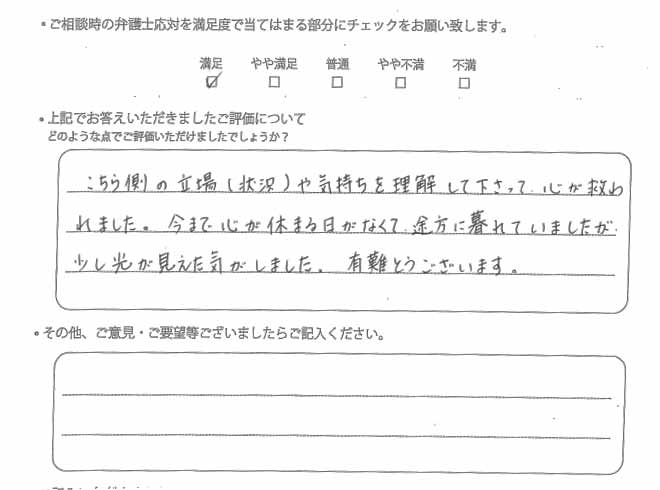 ・ご相談時の弁護士応対を満足度で当てはまる部分にチェックをお願い致します。
満足 やや満足 普通 やや不満 不満
☑ □ □ □ □
・上記でお答えいただきましたご評価について
どのような点でご評価いただけましたでしょうか?
こちら側の立場(状況)や気持ちを理解して下さって、心が救わ
れました。今まで心が休まる日がなくて、途方に暮れていましたが、
少し光が見えた気がしました。有難とうございます。
・その他、ご意見・ご要望等ございましたらご記入ください。